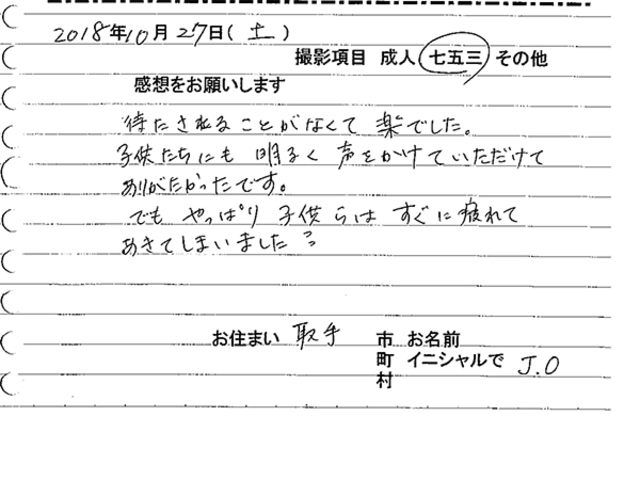 2018年10月27日(土)
撮影項目 成人 七五三 その他
感想をお願いします
待たされることがなくて 楽でした。
子供たちにも 明るく 声をかけていただけて
ありがたかったです。
でも やっぱり 子供らは すぐに 疲れて
あきてしまいました
お住まい 取手 市 お名前
町 イニシャルで J.O
村